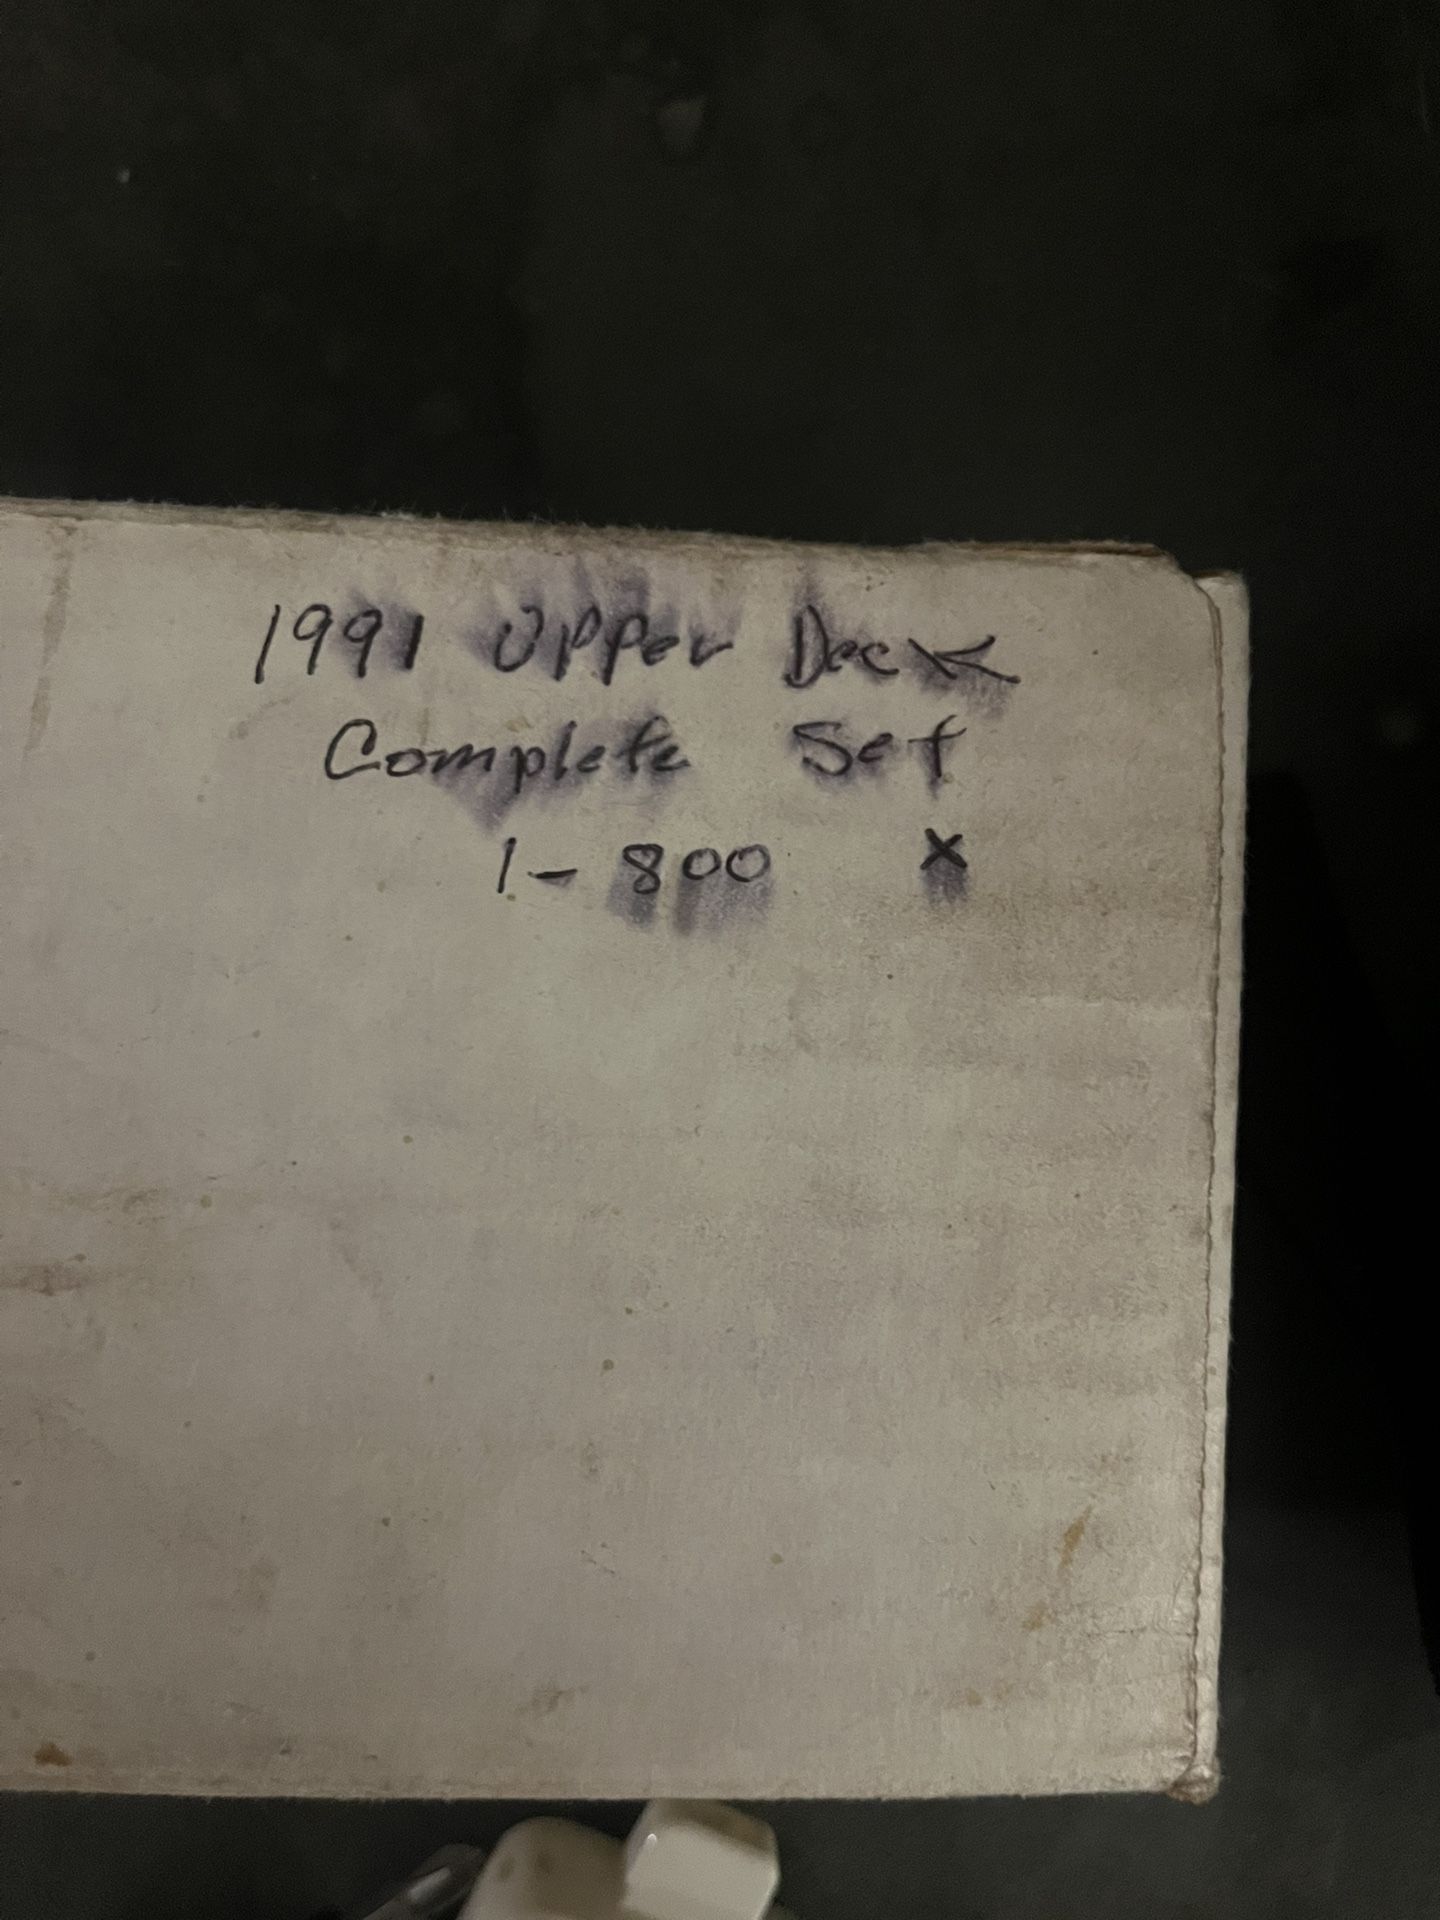 1991 Upper Deck
Complete Set
1-800 X